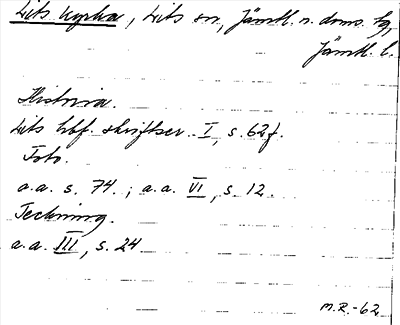 Lits kyrka, Lits sn, Jämtl. n. doms. tg,
Jämtl. l.
Historia.
Lits hbf. skriftser. I, s. 62f.
Foto.
a.a. s. 74. ; a.a. VI, s. 12.
Teckning.
a.a. III, s. 24
M.R.-62